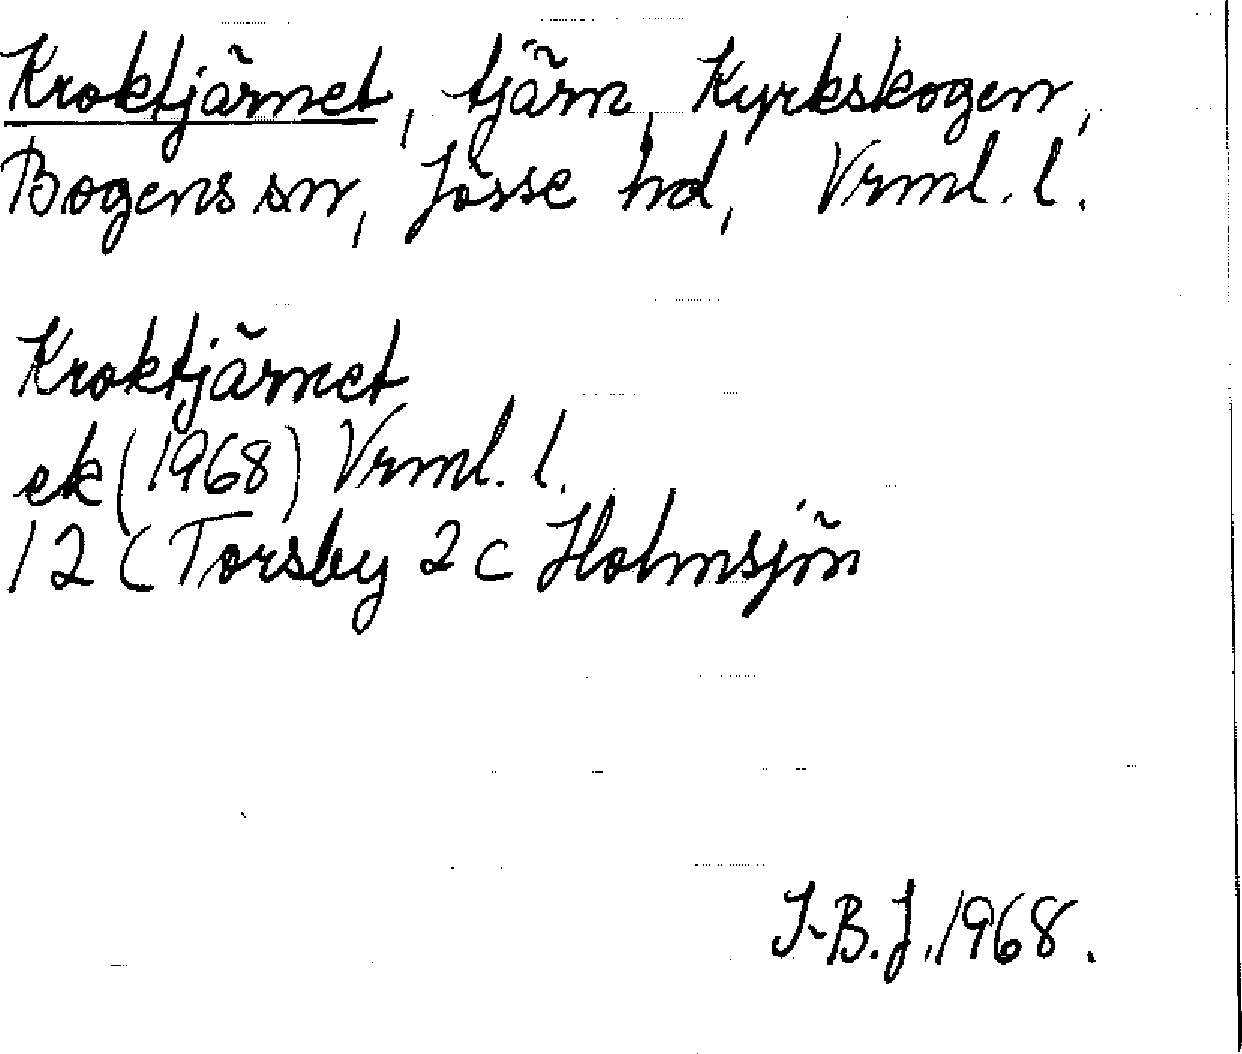 Kroktjärnet, tjärn, Kyrkskogen,
Bogens sn, Jösse hd, Vrml. l.
Kroktjärnet
ek (1968) Vrml. l.
12 C Torsby 2 c Holmsjön
I-B.J. 1968.